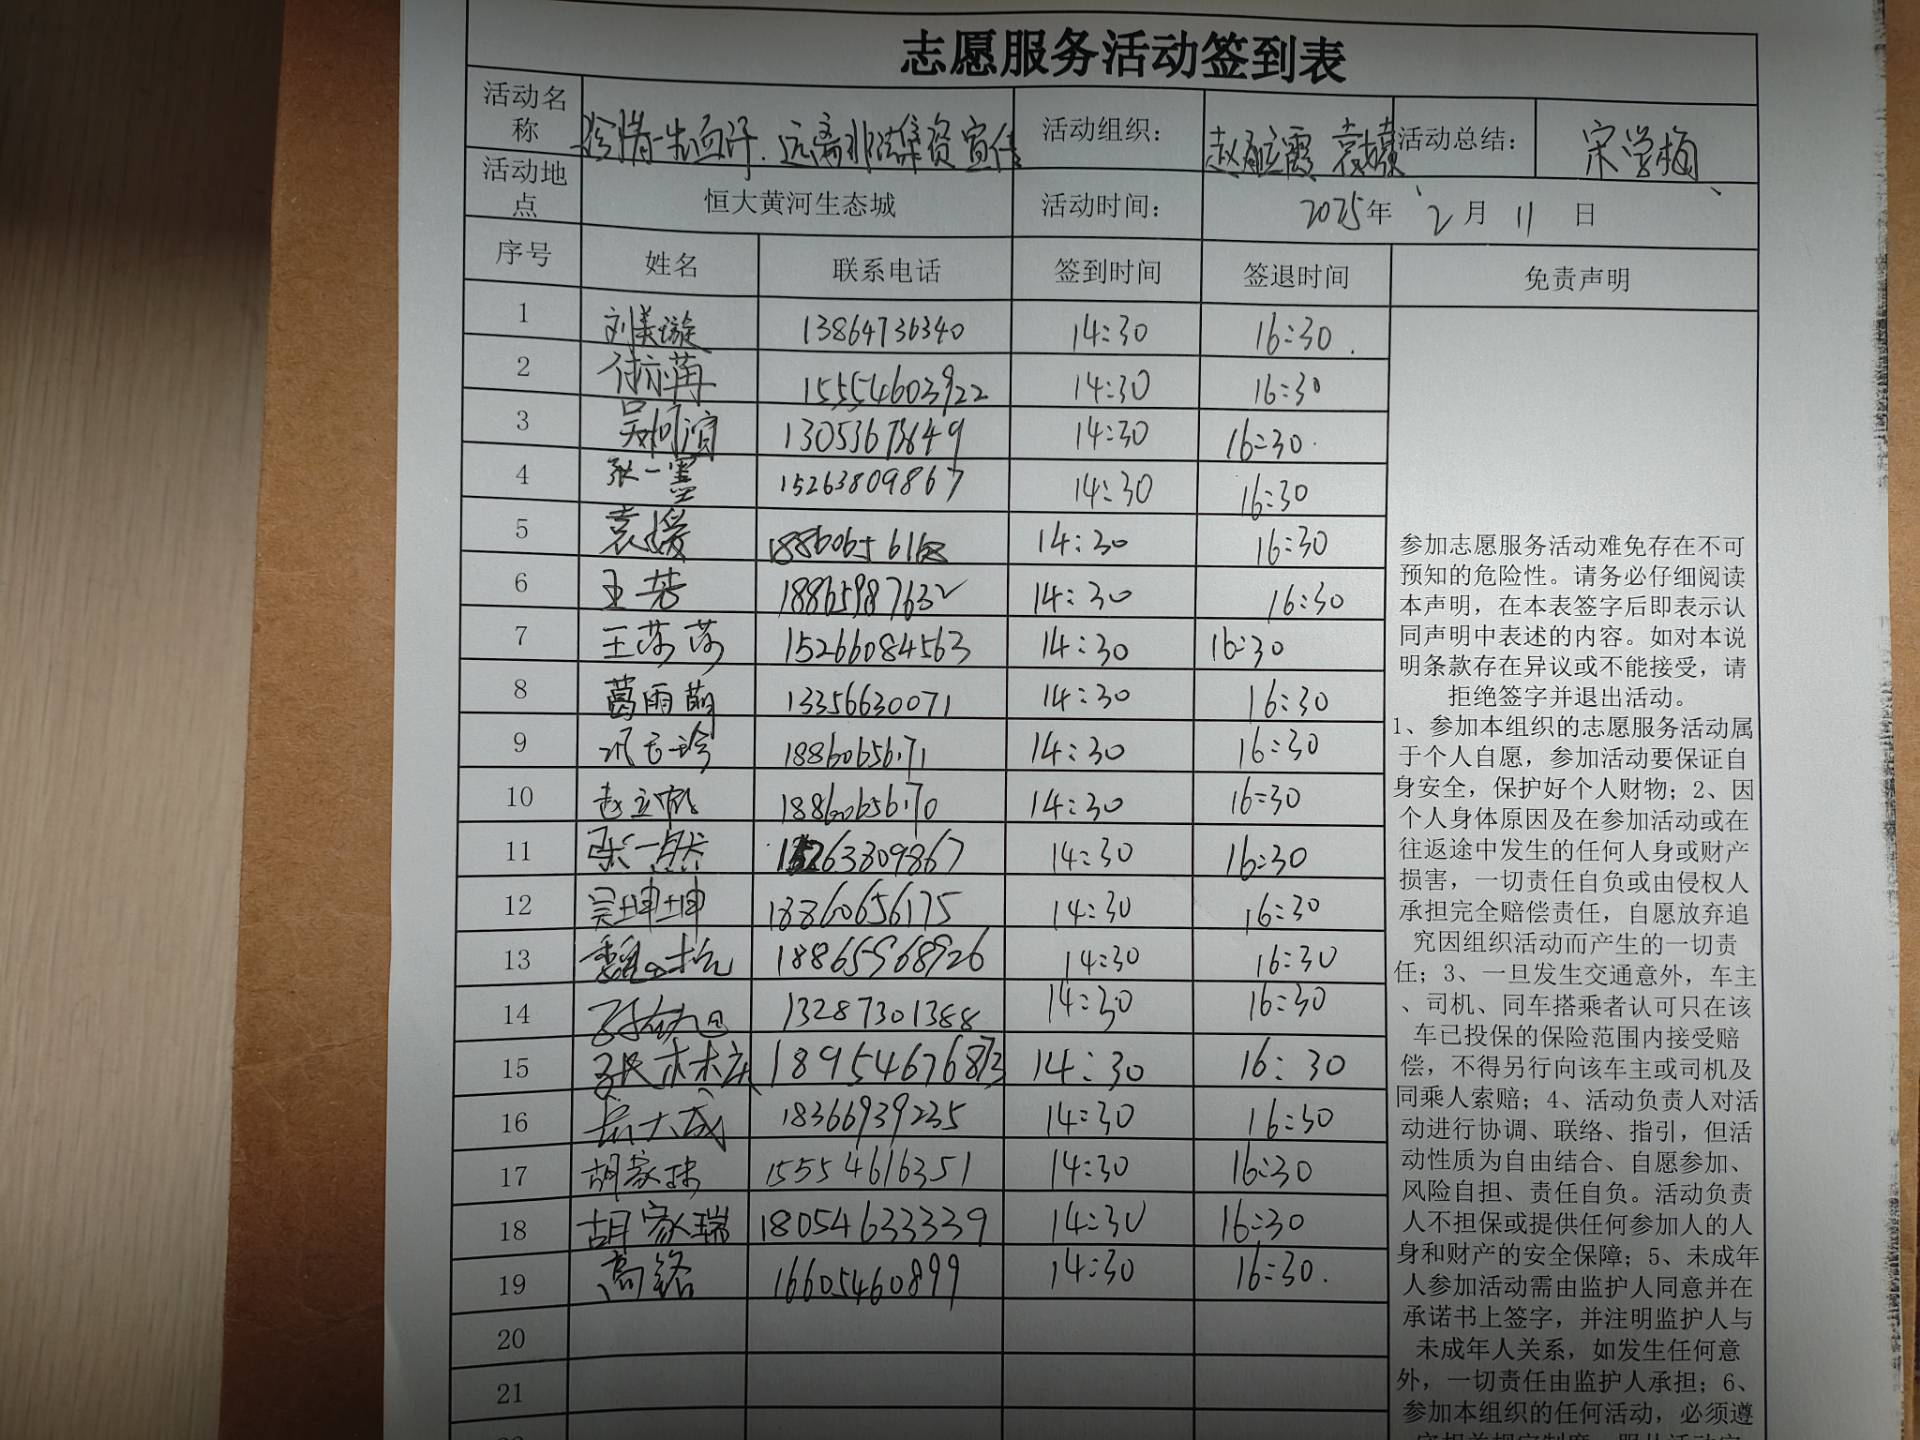 志愿服务活动签到表
活动名称 珍惜一生血汗.远离非法集资宣传 活动组织： 袁媛 活动总结： 宋学梅
活动地点 恒大黄河生态城 活动时间： 2025年 2月 11 日
序号 姓名 联系电话 签到时间 签退时间 免责声明
1 刘美璇 13864736340 14:30 16:30.
2 15554603922 14:30 16:30
3 13053673649 14:30 16:30.
4 张一墨 15263809867 14:30 16:30
5 袁媛 14:30 16:30
6 王芳 18865987632 14:30 16:30
7 王莎莎 15266084563 14:30 16:30
8 葛雨萌 13356630071 14:30 16:30
9 18860656171 14:30 16:30
10 18860656170 14:30 16:30
11 张一然 15263809867 14:30 16:30
12 吴坤坤 18860656175 14:30 16:30
13 18865968926 14:30 16:30
14 13287301388 14:30 16:30
15 18954676873 14:30 16:30
16 岳大成 18366939235 14:30 16:30
17 15554616351 14:30 16:30
18 胡家瑞 18054633339 14:30 16:30
19 高铭 16605460899 14:30 16:30.
20
21
参加志愿服务活动难免存在不可
预知的危险性。请务必仔细阅读
本声明，在本表签字后即表示认
同声明中表述的内容。如对本说
明条款存在异议或不能接受，请
拒绝签字并退出活动。
1、参加本组织的志愿服务活动属
于个人自愿，参加活动要保证自
身安全，保护好个人财物；2、因
个人身体原因及在参加活动或在
往返途中发生的任何人身或财产
损害，一切责任自负或由侵权人
承担完全赔偿责任，自愿放弃追
究因组织活动而产生的一切责
任；3、一旦发生交通意外，车主
、司机、同车搭乘者认可只在该
车已投保的保险范围内接受赔
偿，不得另行向该车主或司机及
同乘人索赔；4、活动负责人对活
动进行协调、联络、指引，但活
动性质为自由结合、自愿参加、
风险自担、责任自负。活动负责
人不担保或提供任何参加人的人
身和财产的安全保障；5、未成年
人参加活动需由监护人同意并在
承诺书上签字，并注明监护人与
未成年人关系，如发生任何意
外，一切责任由监护人承担；6、
参加本组织的任何活动，必须遵